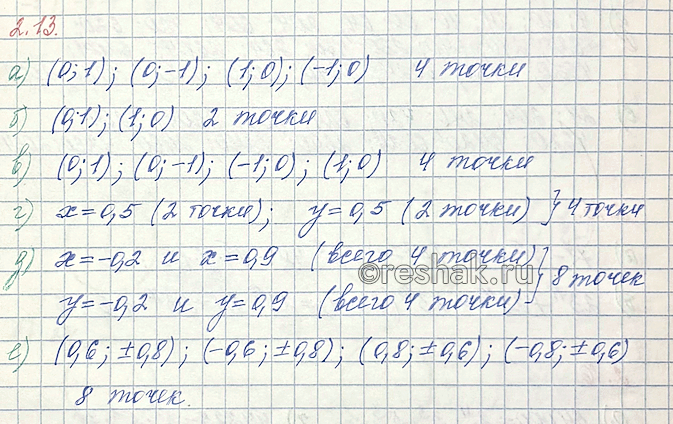 2.13.
а) (0; 1); (0; -1); (1; 0); (-1; 0) 4 точки
б) (0; 1); (1; 0) 2 точки
в) (0; 1); (0; -1); (-1; 0); (1; 0) 4 точки
г) x = 0,5 (2 точки); y = 0,5 (2 точки) } 4 точки
д) x = -0,2 и x = 0,9 (всего 4 точки)
y = -0,2 и y = 0,9 (всего 4 точки) } 8 точек
©reshak.ru
е) (0,6; ±0,8); (-0,6; ±0,8); (0,8; ±0,6); (-0,8; ±0,6)
8 точек.